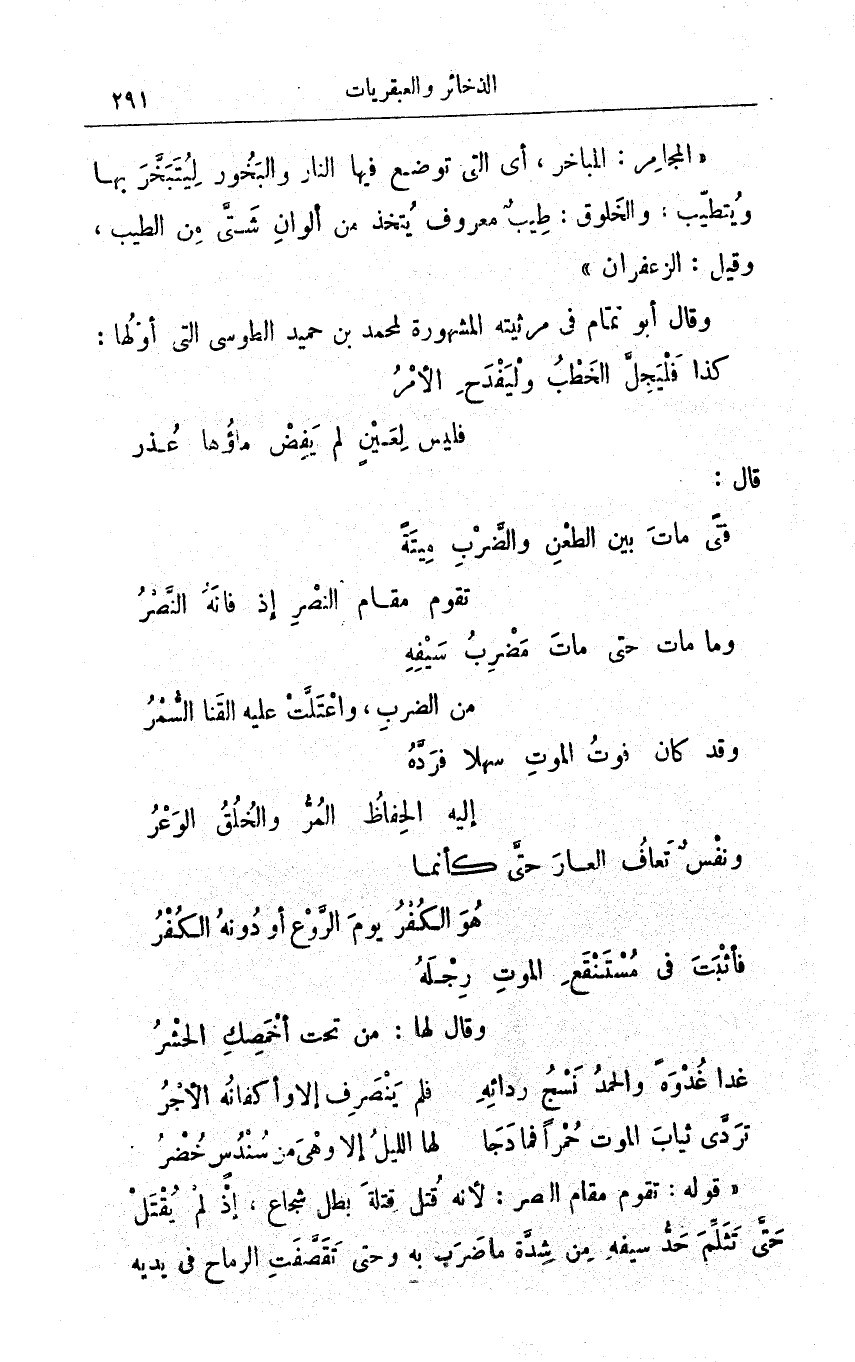 الذخائر والعبقريات ٢٩١
« المجامِر : المباخر ، أى التى توضع فيها النار والبَخُور لِيُتَبَخَّرَ بها
ويُتطيّب : والخَلوق : طِيبٌ معروف يُتخذ من ألوانِ شَتَّى مِن الطيب ،
وقيل : الزعفران »
وقال أبو تمّام فى مرثيته المشهورة لمحمد بن حميد الطوسى التى أوّلُها :
كذا فَلْيَجِلَّ الخَطْبُ ولْيَفْدَحِ الأمْرُ
فليس لِعَيْنٍ لم يَفِضْ ماؤُها عُذر
قال :
فتًى ماتَ بين الطعْنِ والضَّرْبِ مِيتَةً
تقوم مقام النصْرِ إذ فاتَهُ النَّصْرُ
وما مات حتى ماتَ مَضْرِبُ سَيْفِهِ
من الضربِ ، واعْتَلَّتْ عليه القَنا السُّمْرُ
وقد كان فوتُ الموتِ سهلا فرَدَّهُ
إليه الحِفاظُ المُرُّ والخُلُقُ الوَعْرُ
ونفْسٌ تَعافُ العارَ حتَّى كأنما
هُوَ الكُفْرُ يومَ الرَّوْعِ أو دُونهُ الكُفْرُ
فأثْبَتَ فى مُسْتَنْقَعِ الموتِ رِجْلَهُ
وقال لها : من تحت أخْمَصِكِ الحشْرُ
غدا غُدْوَةً والحمدُ نَسْجُ ردائِهِ فلم يَنْصَرِف إلا وأكفانُه الأجْرُ
تَردَّى ثيابَ الموت حُمْراً فما دَجَا لها الليلُ إلا وهْىَ من سُنْدُسٍ خُضْرُ
« قوله : تقوم مقام النصر : لأنه قُتل قِتلةَ بطل شجاع ، إذْ لمْ يُقْتَلْ
حَتَّى تَثَلَّمَ حَدُّ سيفهِ مِن شِدَّة ما ضَرَب به وحتى تَقَصَّفَتِ الرماح فى يديه